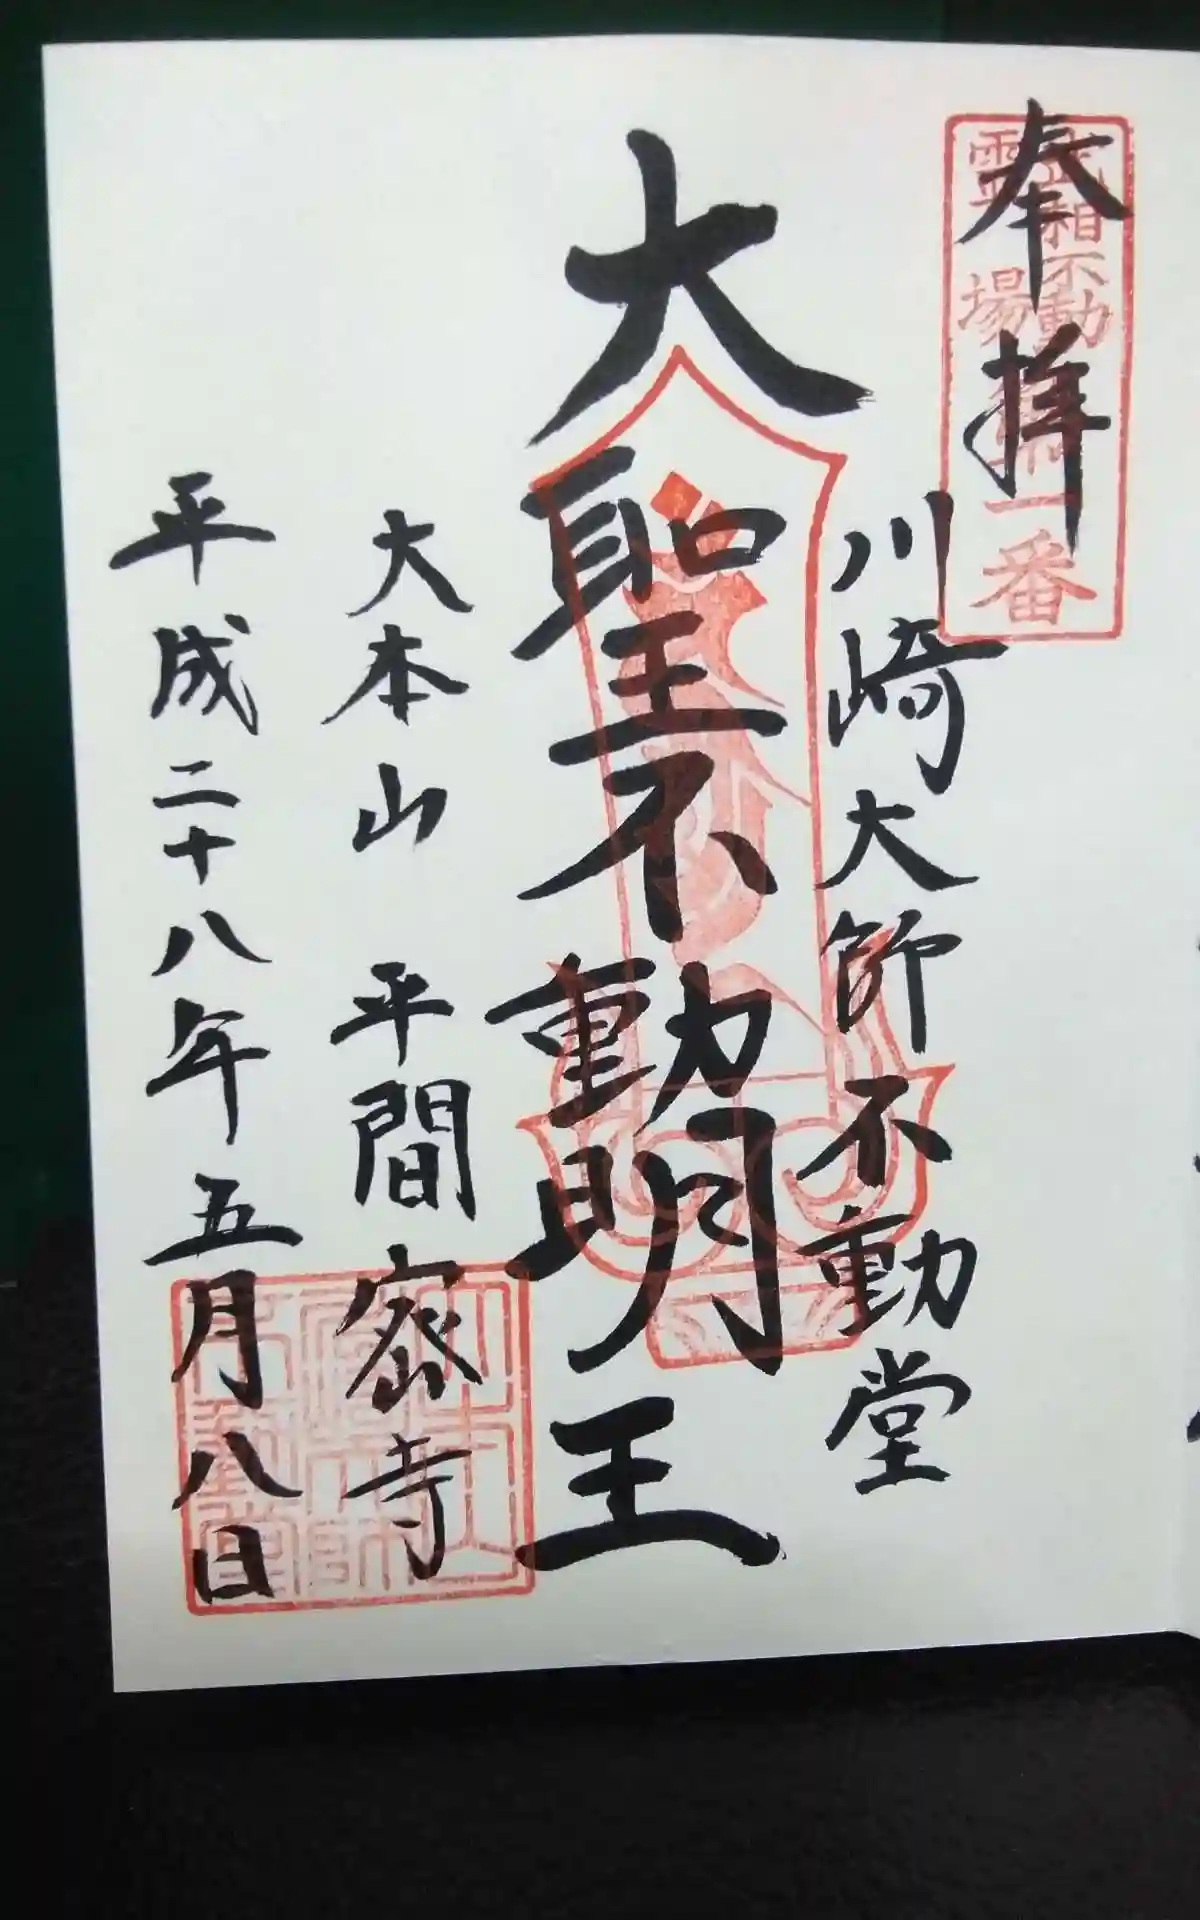 奉拝
武相不動
霊場
第一番
川崎大師不動堂
大聖不動明王
大本山 平間密寺
平成二十八年五月八日